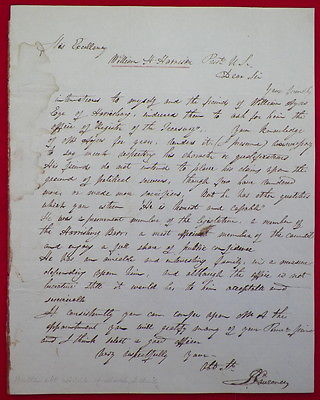 His Excellency
William H Harrison Prest U.S.
Dear Sir
Your friendly
intentions to myself and the friends of William Ayres
Esqr of Harrisburg, induces them to ask for him the
office of "Register of the Treasury". Your knowledge
of Mr Ayres for years, renders it (I presume) unnecessary
to say much respecting his character & qualifications
His friends do not intend to place his claims upon the
grounds of political services, though few have rendered
more, or made more sacrifices. But he has other qualities
which you esteem. He is honest and capable
He was a prominent member of the Legislature, a member
of the Harrisburg Borro: a most efficient member of the council
and enjoys a full share of public confidence
He has an amiable and interesting family, in a measure
depending upon him, and although the office is not
lucrative still it would be to him acceptable and
serviceable
If consistently you can confer upon Mr A the
appointment you will gratify many of your Penna friends
and I think select a good officer
Very respectfully Your
Obt St